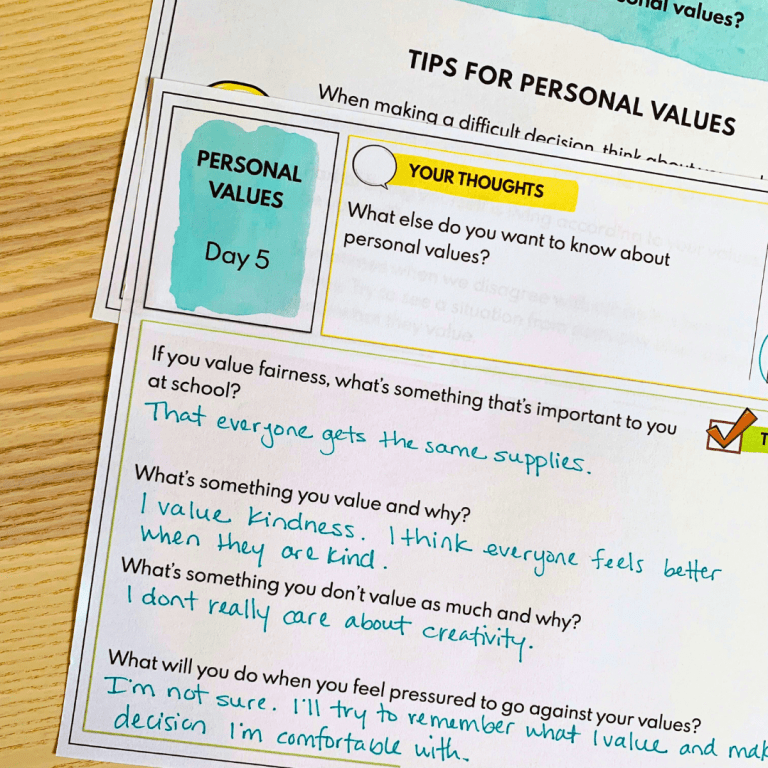 onal values?
TIPS FOR PERSONAL VALUES
When making a difficult decision, think about
PERSONAL
VALUES
Day 5
YOUR THOUGHTS
What else do you want to know about
personal values?
If you value fairness, what's something that's important to you
at school?
That everyone gets the same supplies.
T
What's something you value and why?
I value kindness. I think everyone feels better
when they are kind.
What's something you don't value as much and why?
I dont really care about creativity.
What will you do when you feel pressured to go against your values?
I'm not sure. I'll try to remember what I value and mak
decision I'm comfortable with.